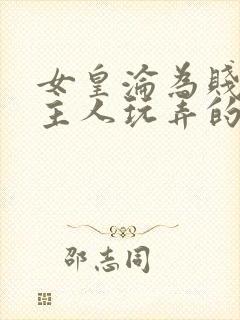 女皇淪為賤
主人玩弄的
邵志同